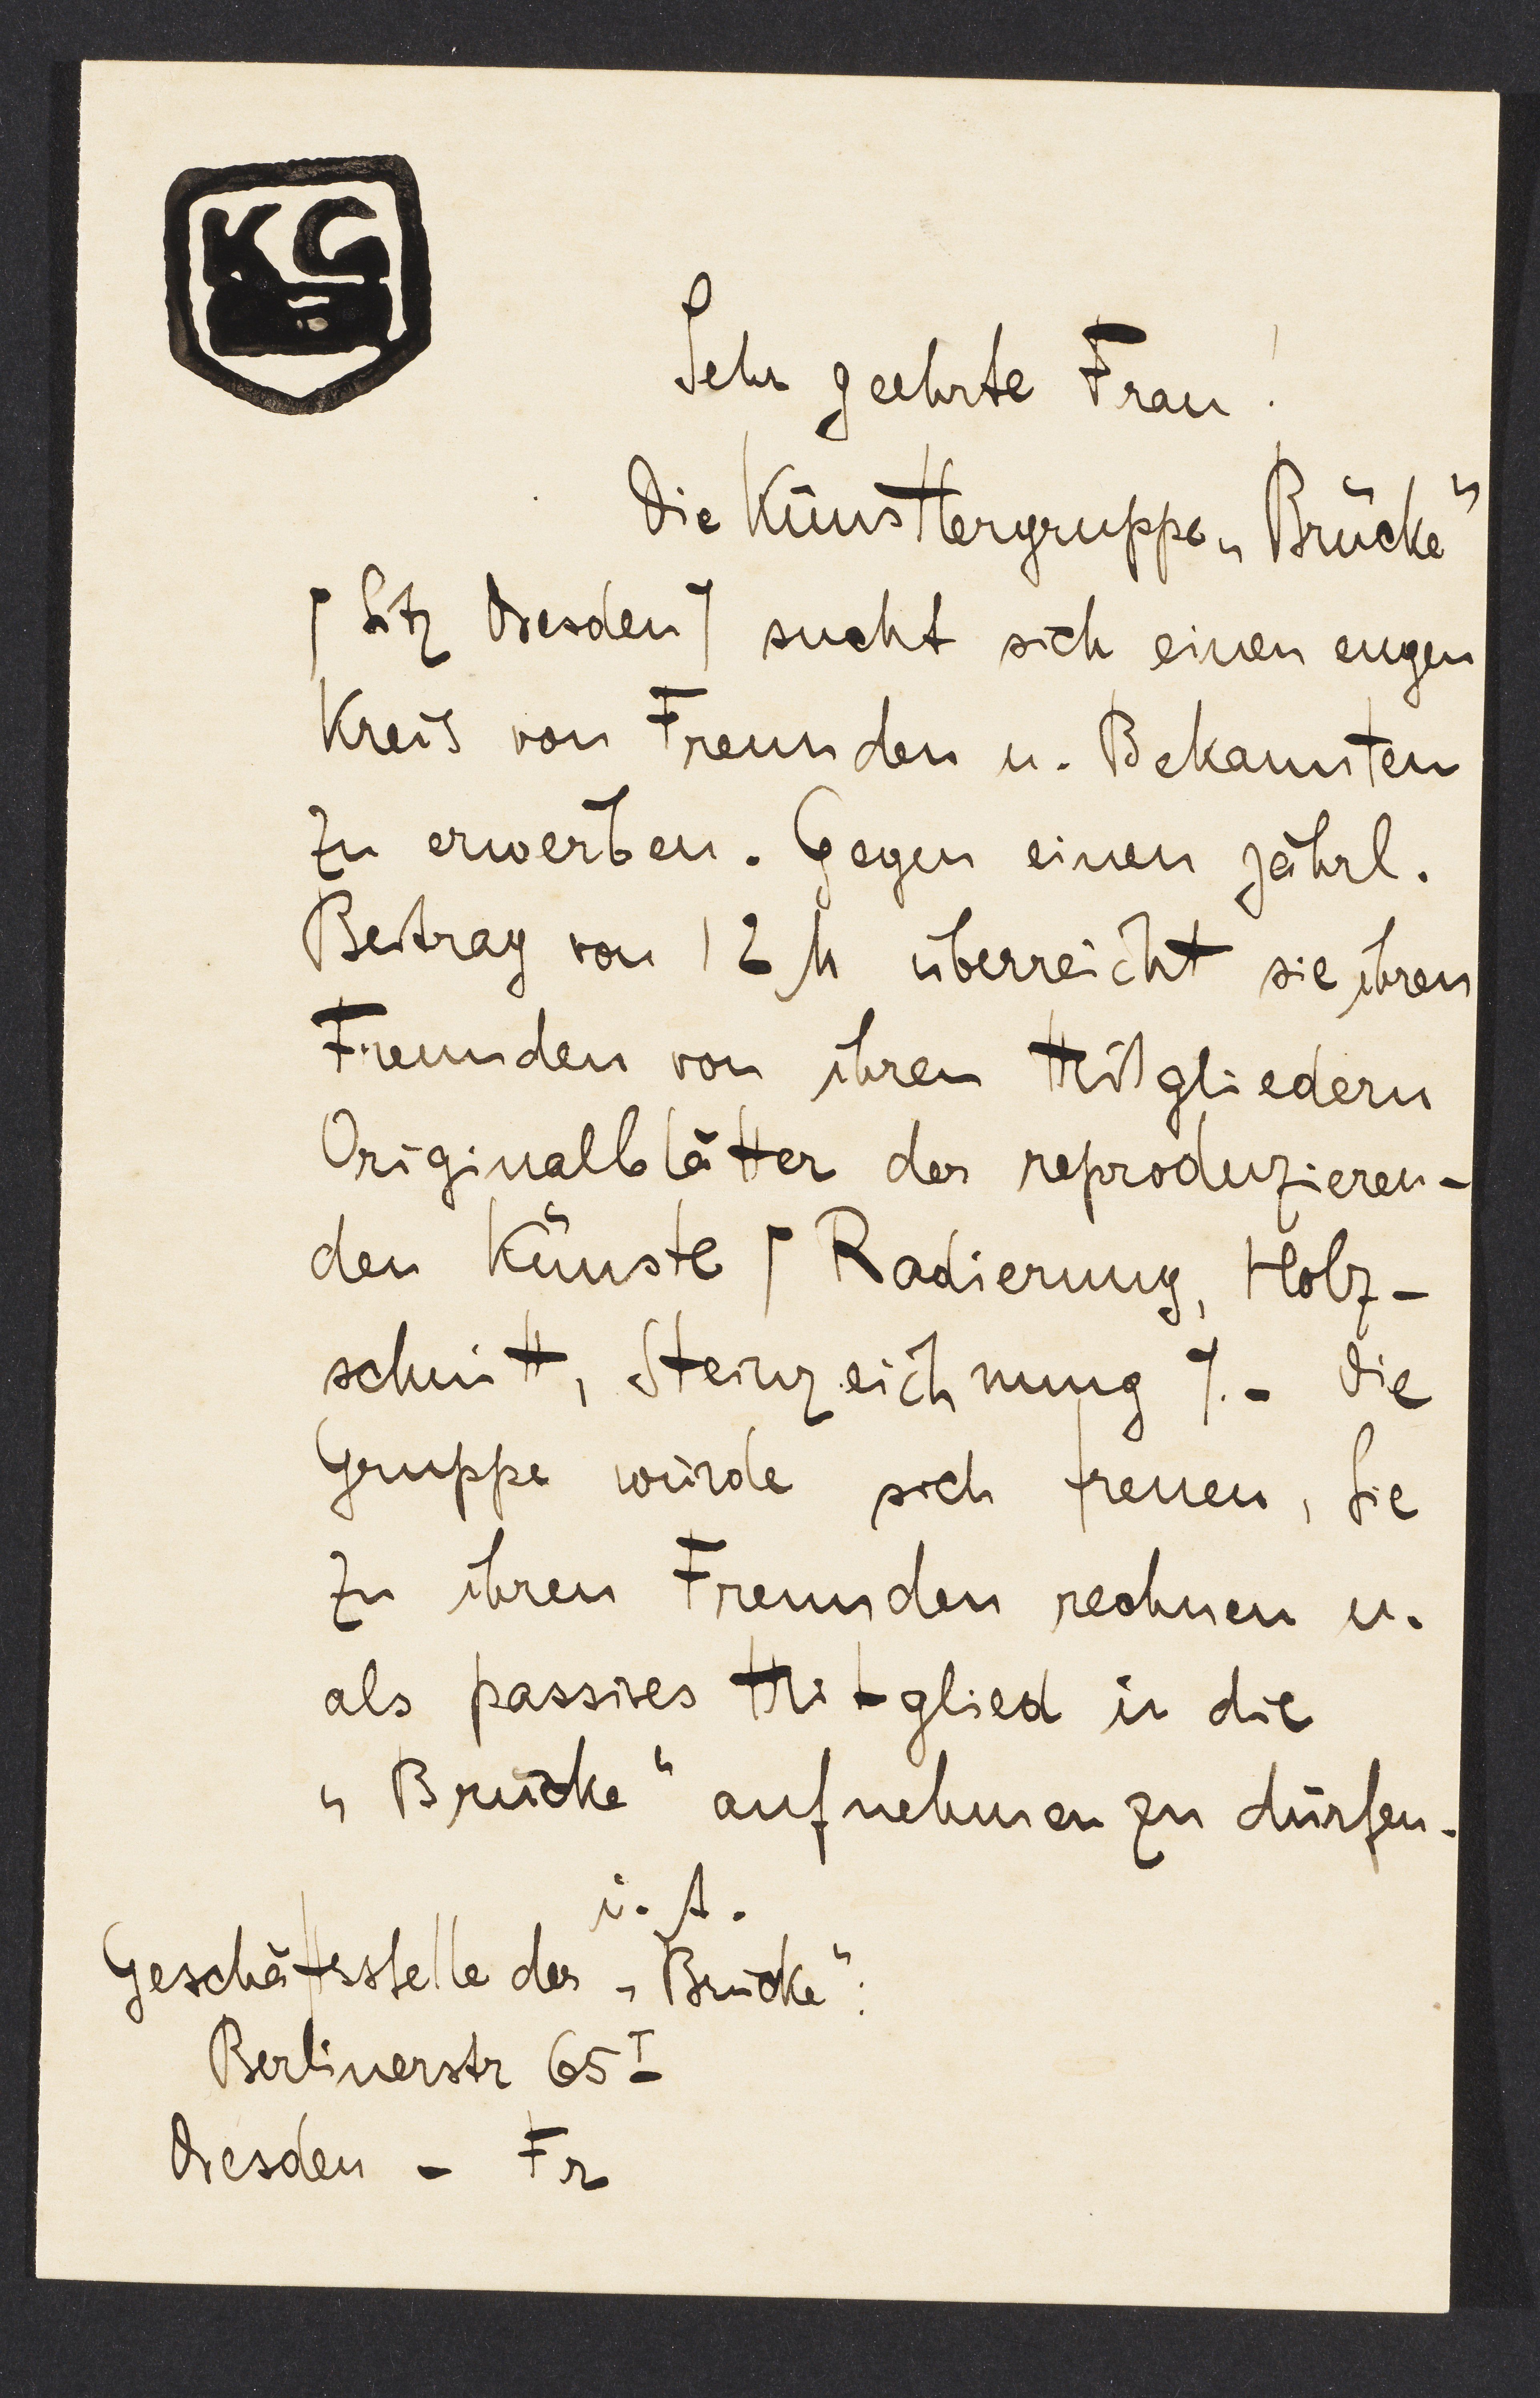 KG
Sehr geehrte Frau!
Die Künstlergruppe „Brücke"
/ Sitz Dresden / sucht sich einen engen
Kreis von Freunden u. Bekannten
zu erwerben. Gegen einen jährl.
Beitrag von 12 M überreicht sie ihren
Freunden von ihren Mitgliedern
Originalblätter der reproduzieren-
den Künste / Radierung, Holz-
schnitt, Steinzeichnung /. - Die
Gruppe würde sich freuen, Sie
zu ihren Freunden rechnen u.
als passives Mitglied in die
„Brücke" aufnehmen zu dürfen.
i. A.
Geschäftsstelle der „Brücke":
Berlinerstr 65 I
Dresden - Fr